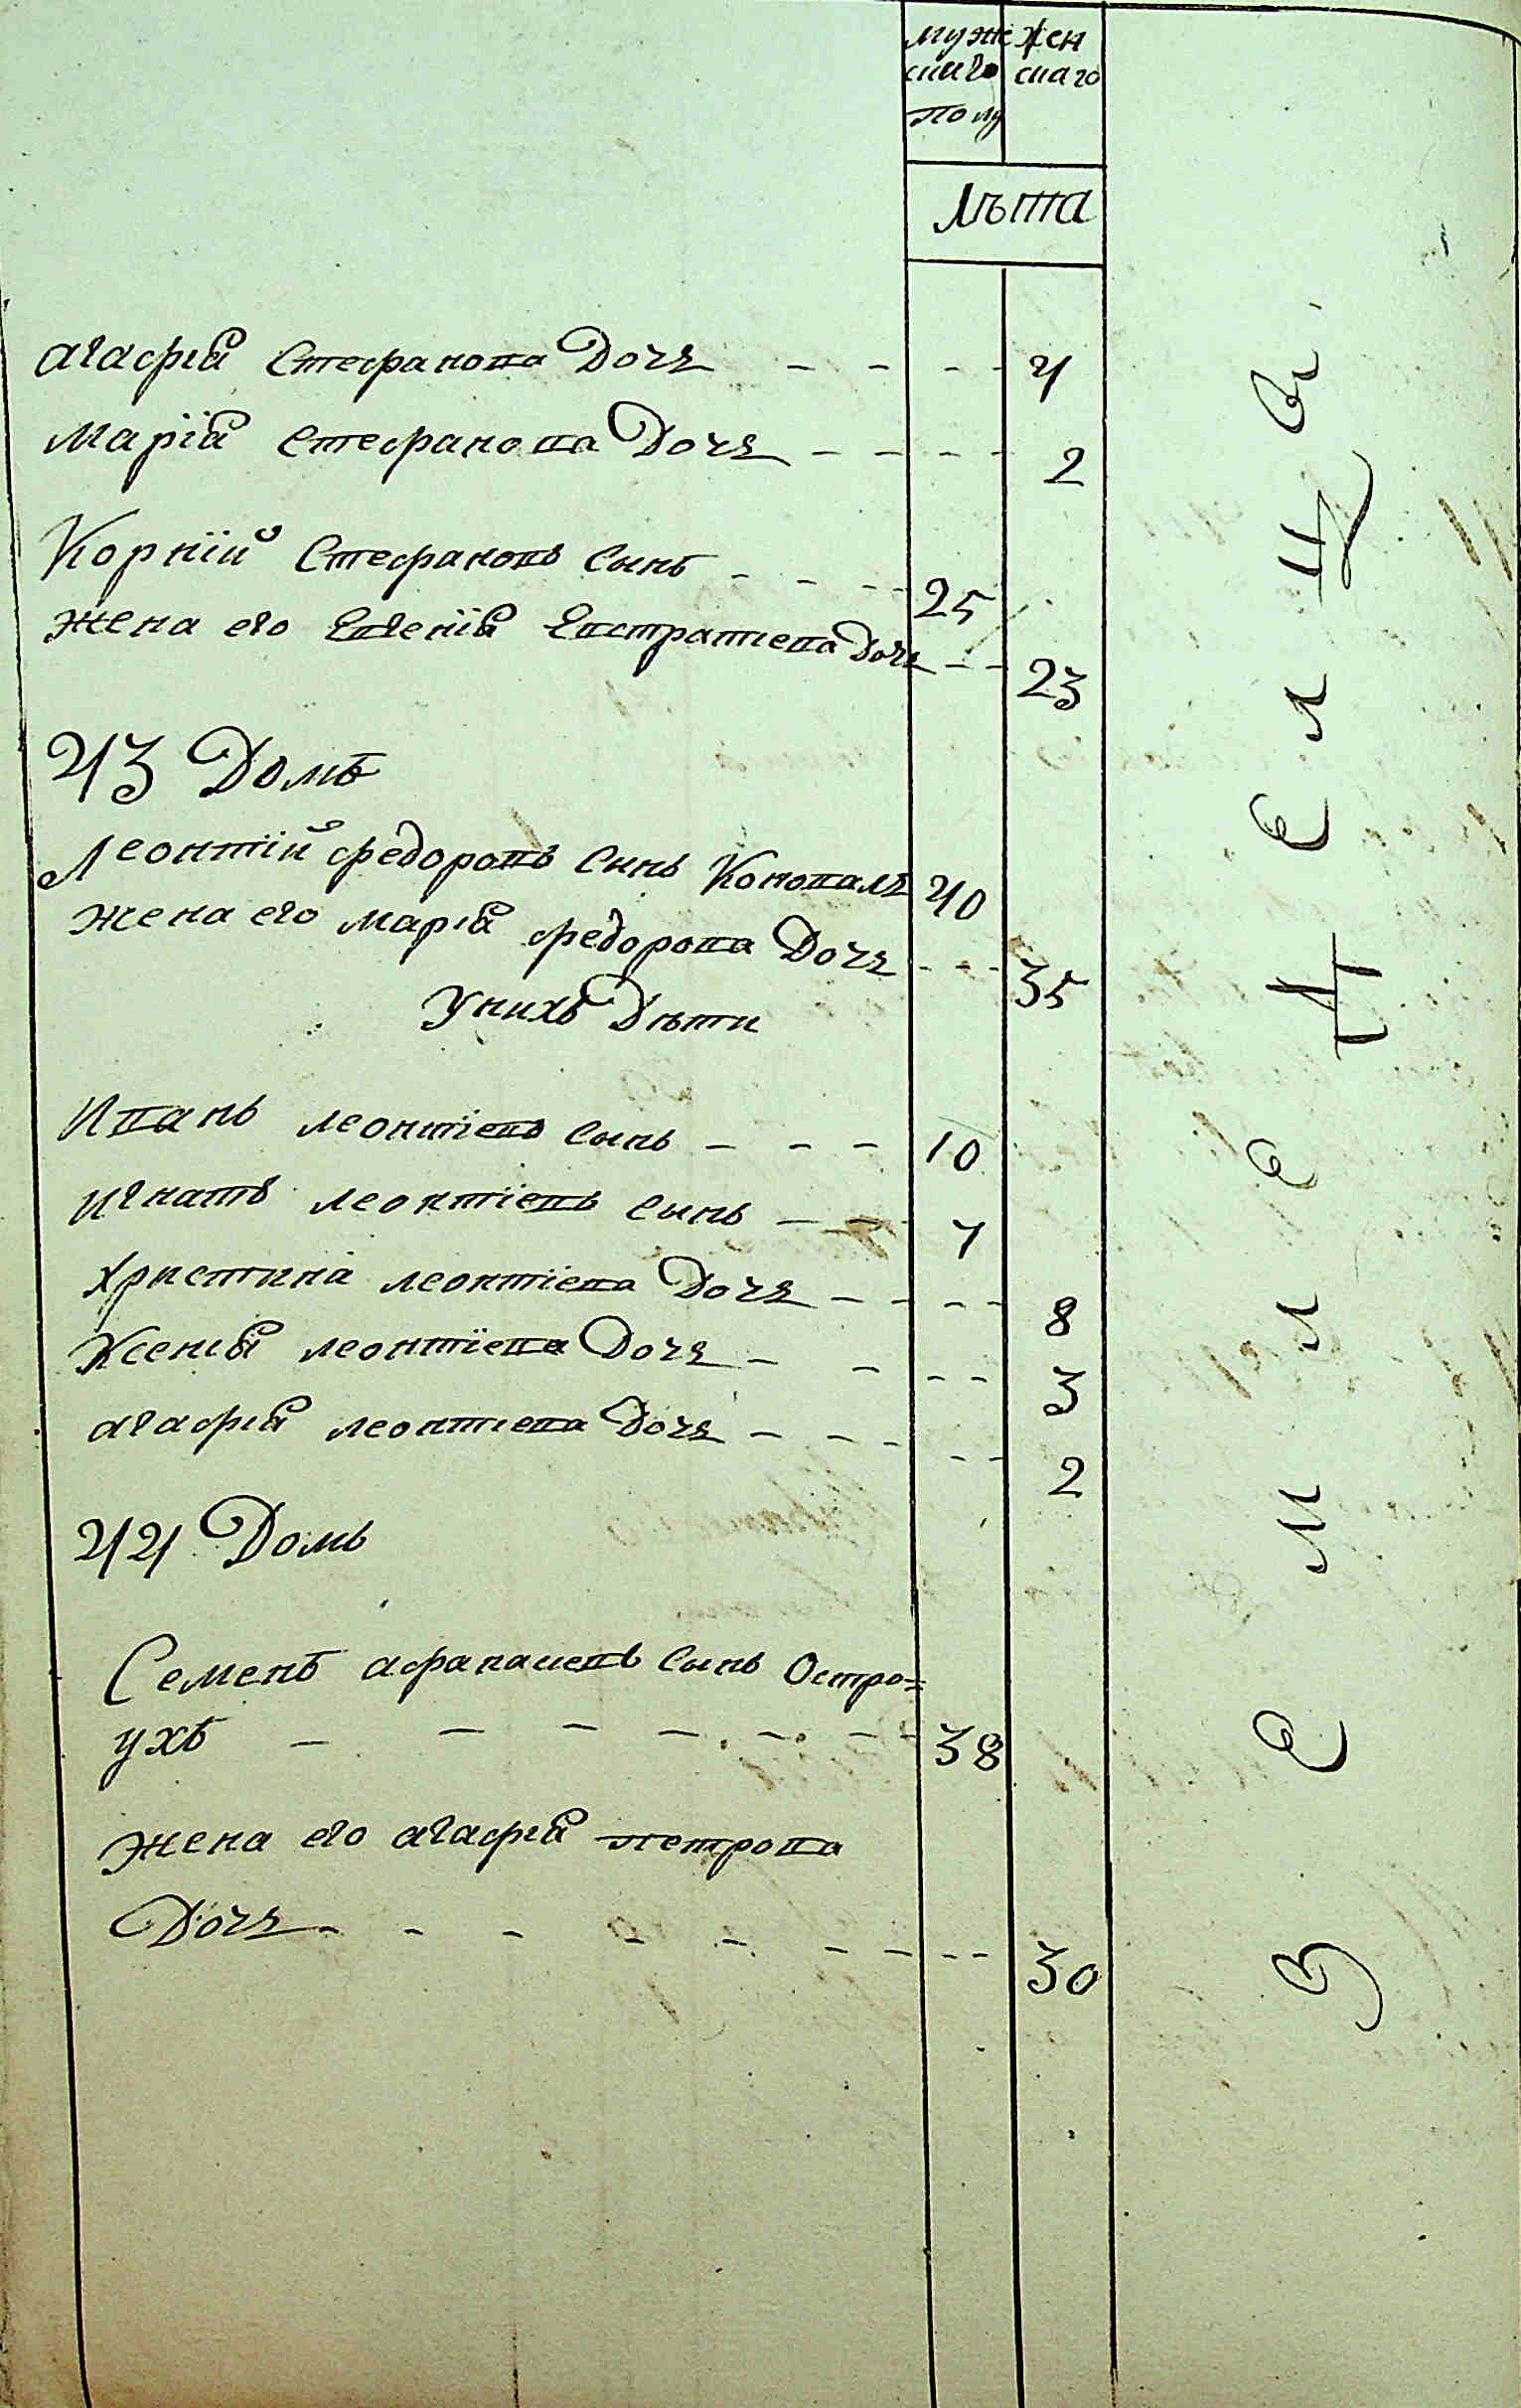 муже жен
скаго скаго
полу
лѣта
агафія Стефанова Дочь 4
Марія Стефанова Дочь 2
Корнїй Стефановъ Сынъ 25
жена его Евгенїя Евстратиева Дочь 23
43 Домъ
Леонтїй федоровъ Синъ Коновалъ 40
жена его марія федорова Дочь 35
Унихъ Дѣти
Иванъ леонтїевъ Сынъ 10
игнатъ леонтїевъ Сынъ 7
христина леонтїева Дочь 8
Ксенія леонтїева Дочь 3
агафія леонтиева Дочь 2
44 Домъ
Семенъ афанасиевъ Сынъ Остро=
ухъ 38
жена его агафія петрова
Дочь 30
З е м л е Д Е л Ц Ы